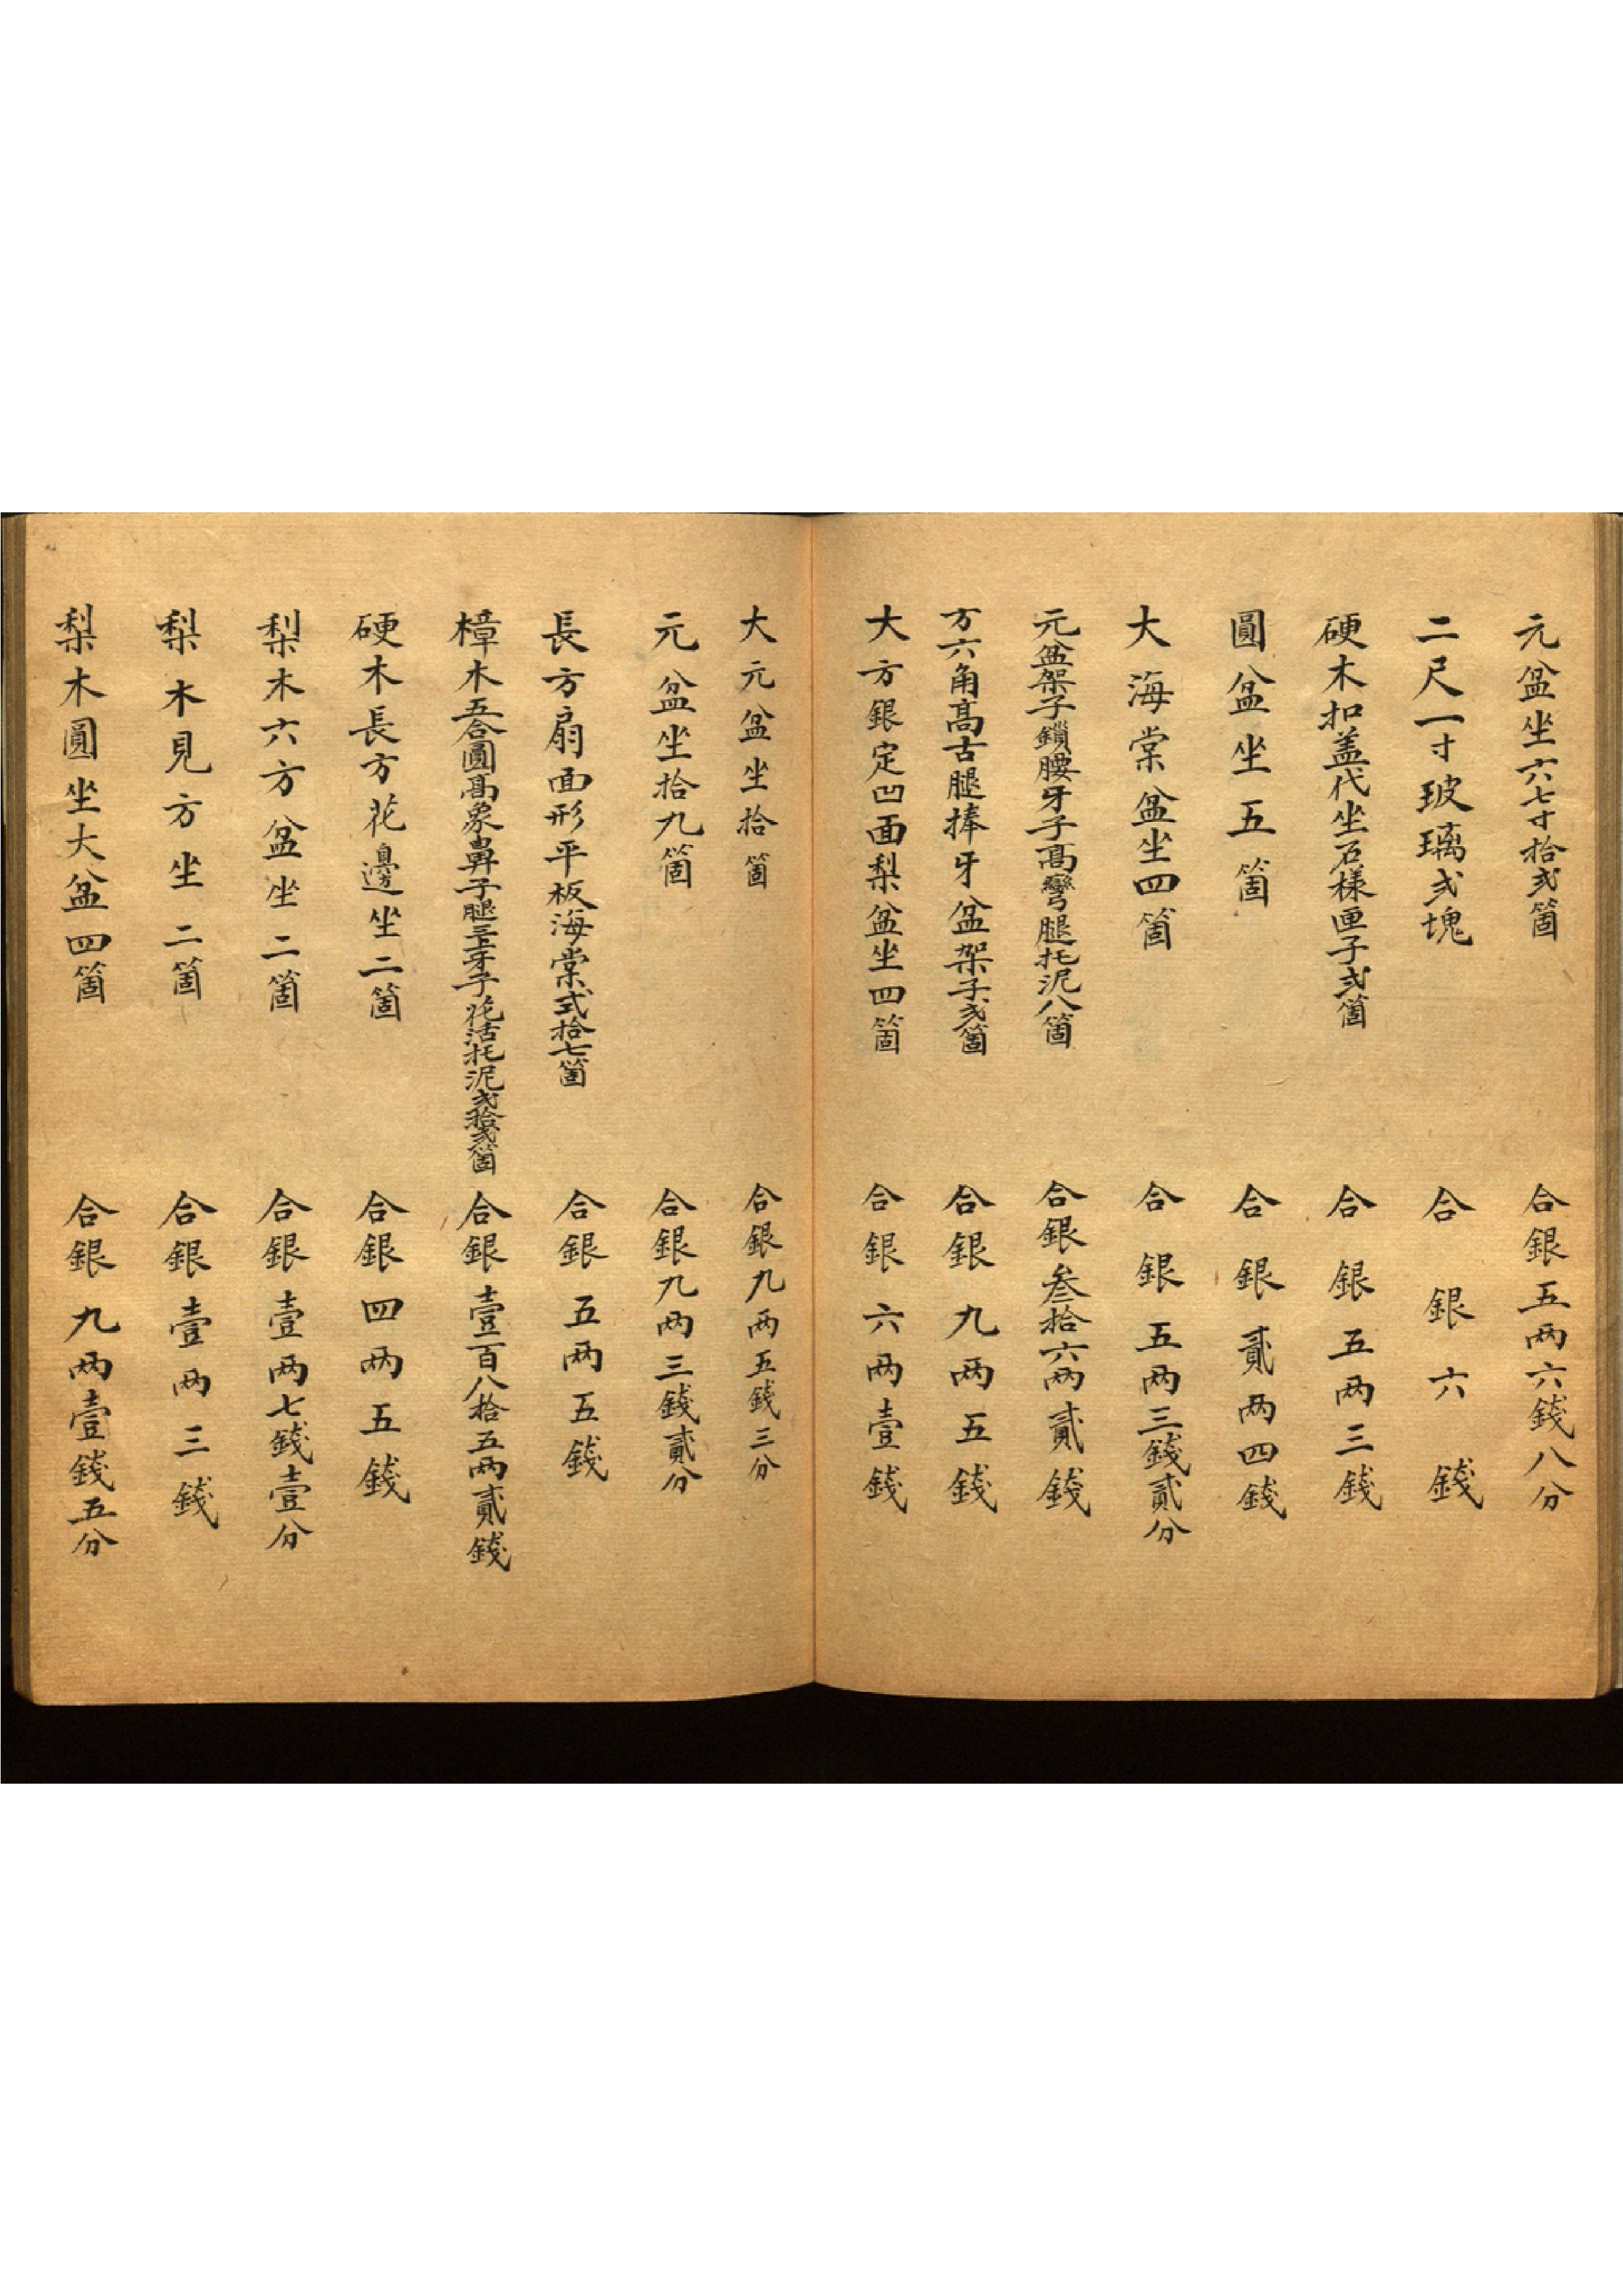 元盆坐六七寸拾弍箇 合銀五两六錢八分
二尺一寸玻璃弍塊 合銀六錢
硬木扣盖代坐石樣匣子弍箇 合銀五两三錢
圓盆坐五箇 合銀貳两四錢
大海棠盆坐四箇 合銀五两三錢貳分
元盆架子鎖腰牙子高彎腿托泥八箇 合銀叁拾六两貳錢
方六角高古腿捧牙盆架子弍箇 合銀九两五錢
大方銀定凹面梨盆坐四箇 合銀六两壹錢
大元盆坐拾箇 合銀九两五錢三分
元盆坐拾九箇 合銀九两三錢貳分
長方扇面形平板海棠式拾七箇 合銀五两五錢
樟木五合圓高象鼻子腿三上牙子花活托泥弍拾弍箇 合銀壹百八拾五两貳錢
硬木長方花邊坐二箇 合銀四两五錢
梨木六方盆坐二箇 合銀壹两七錢壹分
梨木見方坐二箇 合銀壹两三錢
梨木圓坐大盆四箇 合銀九两壹錢五分